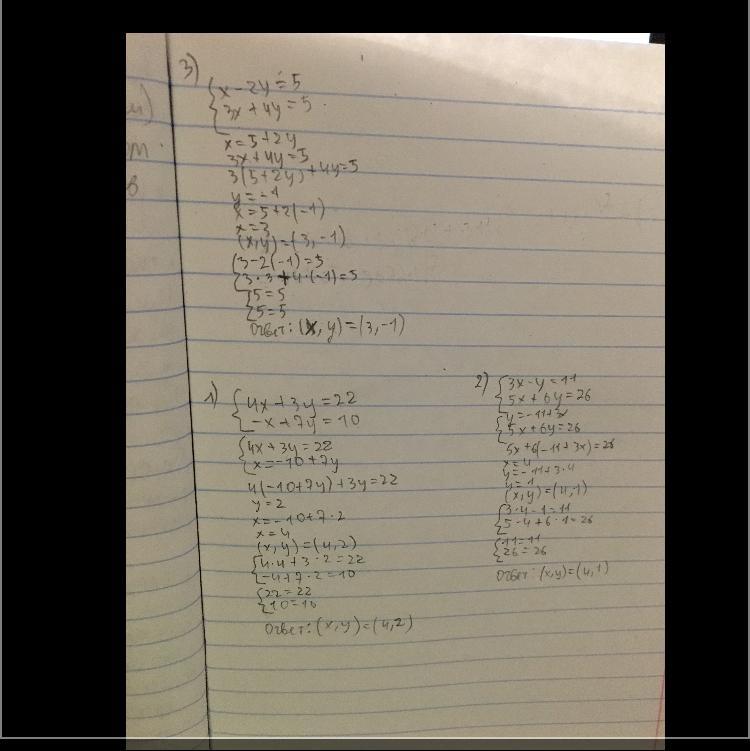 3)
x-2y=5
3x+4y=5
x=5+2y
3x+4y=5
3(5+2y)+4y=5
y=-1
x=5+2(-1)
x=3
(x,y)=(3,-1)
3-2(-1)=5
3·3+4·(-1)=5
5=5
5=5
Ответ: (x,y)=(3,-1)
1)
4x+3y=22
-x+7y=10
4x+3y=22
x=-10+7y
4(-10+7y)+3y=22
y=2
x=-10+7·2
x=4
(x,y)=(4,2)
4·4+3·2=22
-4+7·2=10
22=22
10=10
Ответ: (x,y)=(4,2)
2)
3x-y=11
5x+6y=26
y=-11+3x
5x+6y=26
5x+6(-11+3x)=26
x=4
y=-11+3·4
y=1
(x,y)=(4,1)
3·4-1=11
5·4+6·1=26
11=11
26=26
Ответ: (x,y)=(4,1)